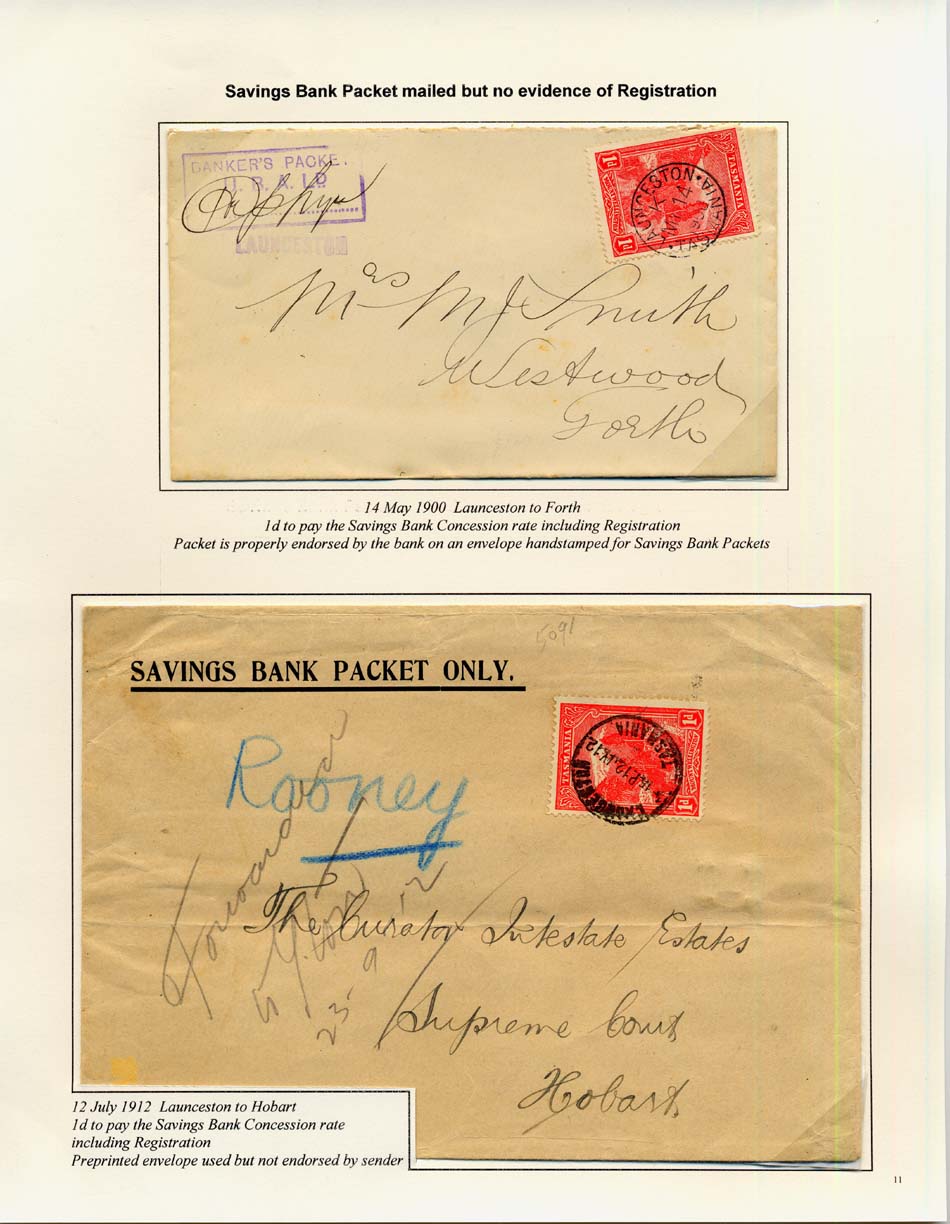 Savings Bank Packet mailed but no evidence of Registration
BANKER'S PACKET
U. B. A. LD
LAUNCESTON
TASMANIA
1d
1d
LAUNCESTON
14
TASMANIA
Mrs M J Smith
Westwood
Forth
14 May 1900 Launceston to Forth
1d to pay the Savings Bank Concession rate including Registration
Packet is properly endorsed by the bank on an envelope handstamped for Savings Bank Packets
5091
SAVINGS BANK PACKET ONLY.
TASMANIA
1d
1d
LAUNCESTON
12 JY 12
TASMANIA
Rooney
Forwarded
23-9-12
The Curator Intestate Estates
Supreme Court
Hobart
12 July 1912 Launceston to Hobart
1d to pay the Savings Bank Concession rate
including Registration
Preprinted envelope used but not endorsed by sender
11